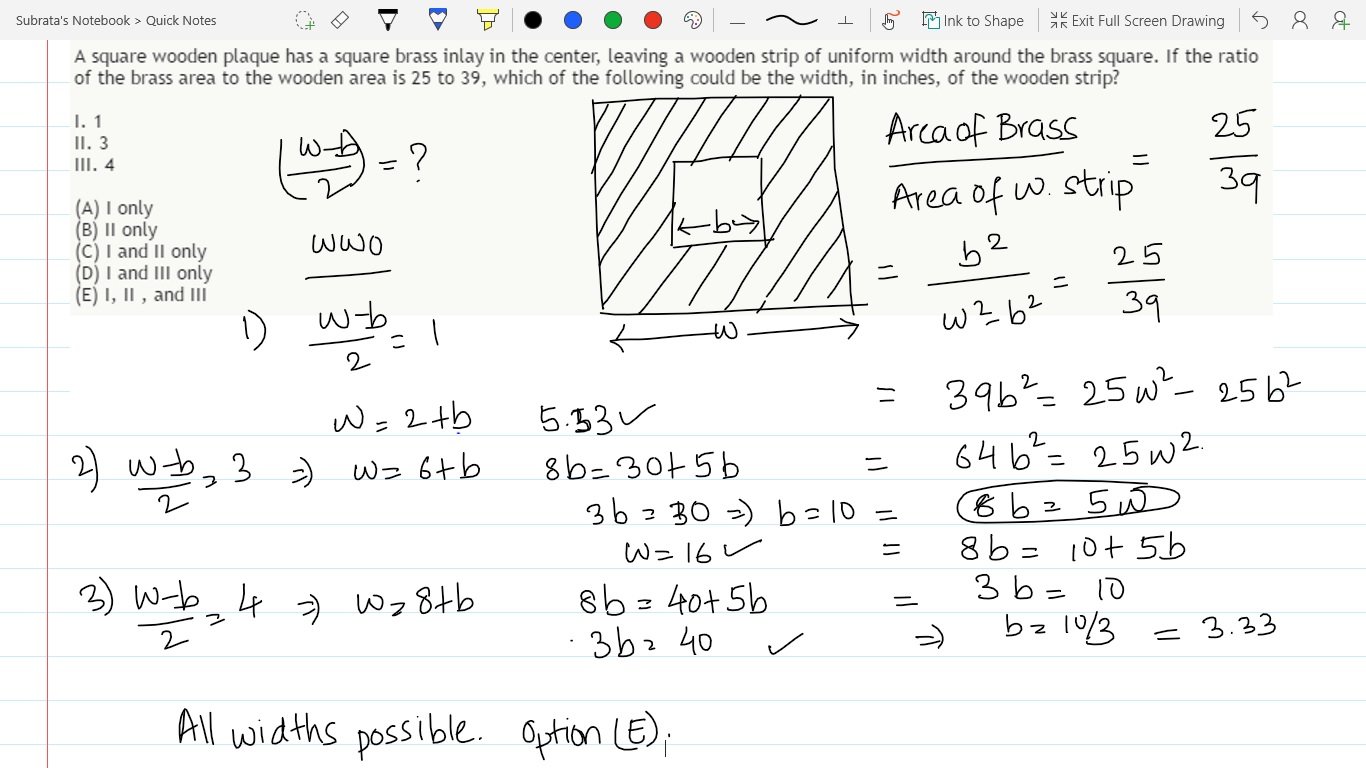 Subrata's Notebook > Quick Notes
Ink to Shape
Exit Full Screen Drawing
A square wooden plaque has a square brass inlay in the center, leaving a wooden strip of uniform width around the brass square. If the ratio
of the brass area to the wooden area is 25 to 39, which of the following could be the width, in inches, of the wooden strip?
I. 1
II. 3
III. 4
(A) I only
(B) II only
(C) I and II only
(D) I and III only
(E) I, II , and III
(w-b/2) = ?
wwo
b
w
Area of Brass / Area of w. strip = 25/39
= b²/w²-b² = 25/39
= 39b² = 25w² - 25b²
= 64b² = 25w²
= 8b = 5w
= 8b = 10+5b
= 3b = 10
=> b = 10/3 = 3.33
1) w-b/2 = 1
w = 2+b 5.33 ✓
2) w-b/2 = 3 => w = 6+b 8b = 30+5b
3b = 30 => b = 10
w = 16 ✓
3) w-b/2 = 4 => w = 8+b 8b = 40+5b
3b = 40 ✓
All widths possible. Option (E)